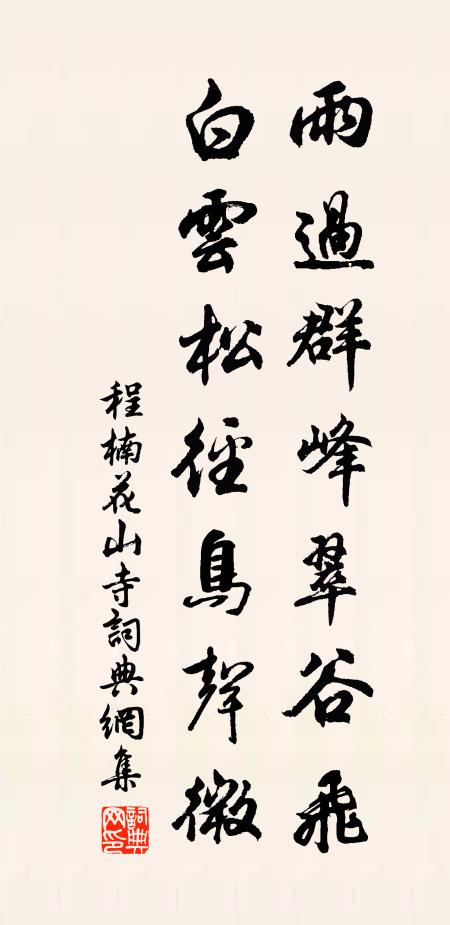 雨過群峰翠谷飛
白雲松徑鳥聲微
程楠花山寺詞典網集
詞典網印